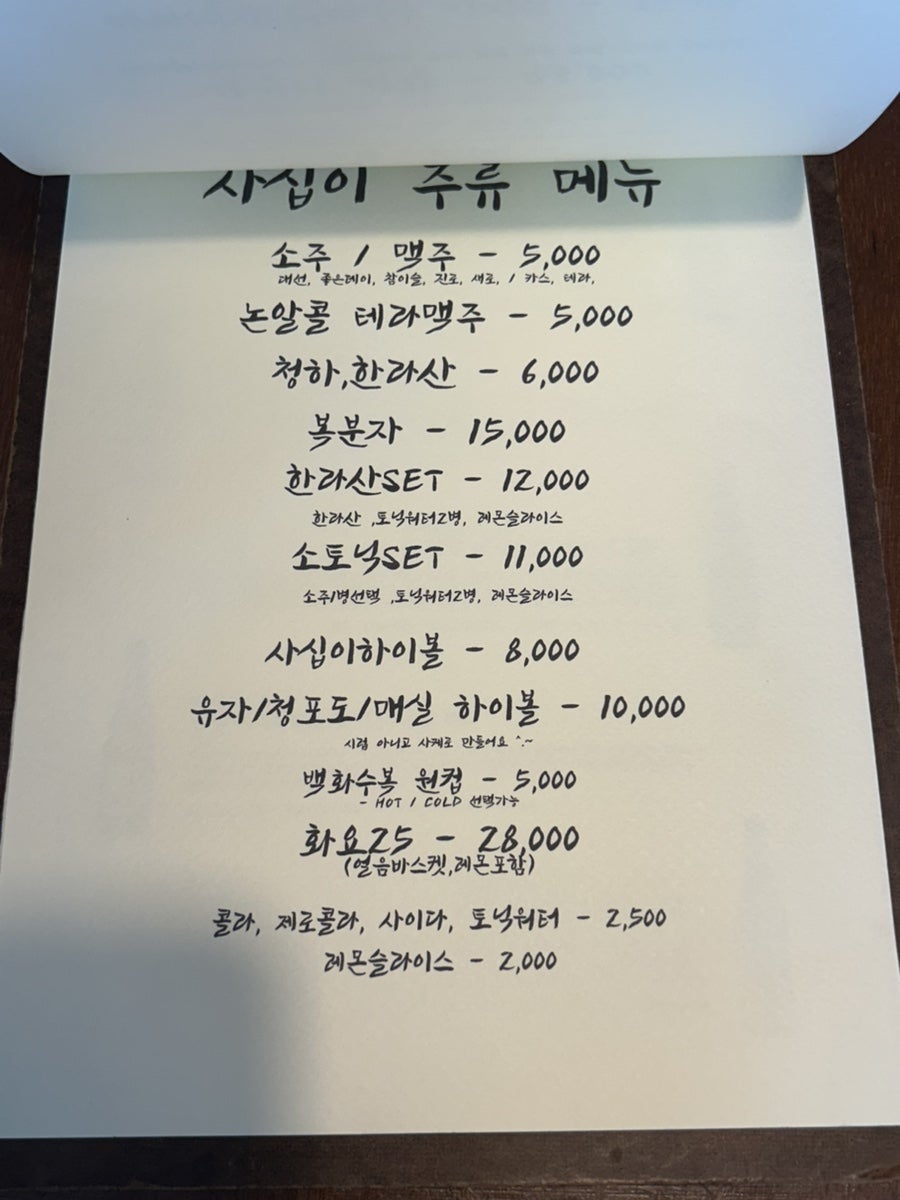 사십이 주류 메뉴
소주 / 맥주 - 5,000
대선, 좋은데이, 참이슬, 진로, 새로, / 카스, 테라,
논알콜 테라맥주 - 5,000
청하,한라산 - 6,000
복분자 - 15,000
한라산SET - 12,000
한라산 ,토닉워터2병, 레몬슬라이스
소토닉SET - 11,000
소주1병선택 ,토닉워터2병, 레몬슬라이스
사십이하이볼 - 8,000
유자/청포도/매실 하이볼 - 10,000
시럽 아니고 사케로 만들어요 ^.~
백화수복 원컵 - 5,000
- HOT / COLD 선택가능
화요25 - 28,000
(얼음바스켓,레몬포함)
콜라, 제로콜라, 사이다, 토닉워터 - 2,500
레몬슬라이스 - 2,000